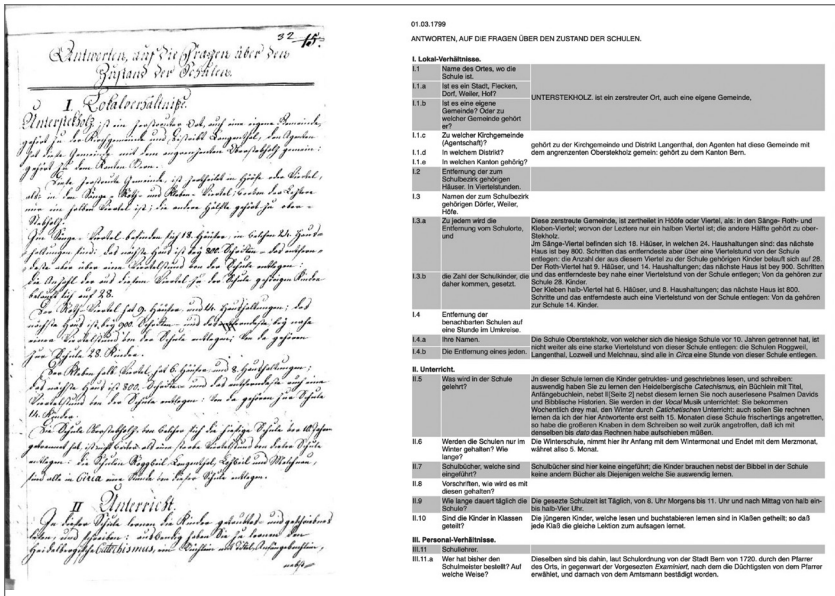 32 15.
Antworten, auf die Fragen über den
Zustand der Schulen.
I. Lokalverhältniße.
Unterstekholz ist ein zerstreuter Ort, auch eine eigene Gemeinde,
gehört zu der Kirchgemeinde und Distrikt Langenthal, den Agenten
hat diese Gemeinde mit dem angrenzenten Oberstekholz gemein:
gehört zu dem Kanton Bern.
Diese zerstreute Gemeinde, ist zertheilet in Hööfe oder Viertel,
als: in den Sänge- Roth- und Kleben-Viertel; worvon der Leztere
nur ein halber Viertel ist; die andere Hälfte gehört zu ober-
Stekholz.
Jm Sänge-Viertel befinden sich 18. Häuser, in welchen 24. Haus-
haltungen sind: das nächste Haus ist bey 800. Schritten das entfern-
deste aber über eine Viertelstund von der Schule entlegen:
die Anzahl der aus diesem Viertel zu der Schule gehörigen Kinder
belauft sich auf 28.
Der Roth-Viertel hat 9. Häuser, und 14. Haushaltungen; das
nächste Haus ist bey 900. Schritten und das entferndeste bey nahe
einer Viertelstund von der Schule entlegen; Von da gehören
zur Schule 28. Kinder.
Der Kleben halb-Viertel hat 6. Häuser, und 8. Haushaltungen;
das nächste Haus ist 800. Schritte und das entferndeste auch eine
Viertelstund von der Schule entlegen: Von da gehören zur Schule
14. Kinder.
Die Schule Oberstekholz, von welcher sich die hiesige Schule vor 10. Jahren
getrennet hat, ist nicht weiter als eine starke Viertelstund von dieser Schule
entlegen: die Schulen Roggweil, Langenthal, Lozweil und Melchnau,
sind alle in Circa eine Stunde von dieser Schule entlegen.
II Unterricht.
Jn dieser Schule lernen die Kinder getruktes- und geschriebnes
lesen, und schreiben: auswendig haben Sie zu lernen den
Heidelbergische Catechismus, ein Büchlein mit Titel, Anfängebuchlein,
nebst
01.03.1799
ANTWORTEN, AUF DIE FRAGEN ÜBER DEN ZUSTAND DER SCHULEN.
I. Lokal-Verhältnisse.
I.1 Name des Ortes, wo die
Schule ist.
I.1.a Ist es ein Stadt, Flecken,
Dorf, Weiler, Hof?
I.1.b Ist es eine eigene
Gemeinde? Oder zu
welcher Gemeinde gehört
er?
UNTERSTEKHOLZ. ist ein zerstreuter Ort, auch eine eigene Gemeinde,
I.1.c Zu welcher Kirchgemeinde
(Agentschaft)?
I.1.d In welchem Distrikt?
I.1.e In welchen Kanton gehörig?
gehört zu der Kirchgemeinde und Distrikt Langenthal, den Agenten hat diese Gemeinde mit
dem angrenzenten Oberstekholz gemein: gehört zu dem Kanton Bern.
I.2 Entfernung der zum
Schulbezirk gehörigen
Häuser. In Viertelstunden.
I.3 Namen der zum Schulbezirk
gehörigen Dörfer, Weiler,
Höfe.
I.3.a Zu jedem wird die
Entfernung vom Schulorte,
und
I.3.b die Zahl der Schulkinder, die
daher kommen, gesetzt.
Diese zerstreute Gemeinde, ist zertheilet in Hööfe oder Viertel, als: in den Sänge- Roth- und
Kleben-Viertel; worvon der Leztere nur ein halber Viertel ist; die andere Hälfte gehört zu ober-
Stekholz.
Jm Sänge-Viertel befinden sich 18. Häuser, in welchen 24. Haushaltungen sind: das nächste
Haus bey. 800. Schritten das entferndeste aber über eine Viertelstund von der Schule
entlegen: die Anzahl der aus diesem Viertel zu der Schule gehörigen Kinder belauft sich auf 28.
Der Roth-Viertel hat 9. Häuser, und 14. Haushaltungen; das nächste Haus ist bey 900. Schritten
und das entferndeste bey nahe einer Viertelstund von der Schule entlegen; Von da gehören zur
Schule 28. Kinder.
Der Kleben halb-Viertel hat 6. Häuser, und 8. Haushaltungen; das nächste Haus ist 800.
Schritte und das entferndeste auch eine Viertelstund von der Schule entlegen: Von da gehören
zur Schule 14. Kinder.
I.4 Entfernung der
benachbarten Schulen auf
eine Stunde im Umkreise.
I.4.a Ihre Namen.
I.4.b Die Entfernung eines jeden.
Die Schule Oberstekholz, von welcher sich die hiesige Schule vor 10. Jahren getrennet hat, ist
nicht weiter als eine starke Viertelstund von dieser Schule entlegen: die Schulen Roggweil,
Langenthal, Lozweil und Melchnau, sind alle in Circa eine Stunde von dieser Schule entlegen.
II. Unterricht.
II.5 Was wird in der Schule
gelehrt?
Jn dieser Schule lernen die Kinder getruktes- und geschriebnes lesen, und schreiben:
auswendig haben Sie zu lernen den Heidelbergische Catechismus, ein Büchlein mit Titel,
Anfängebuchlein, nebst ||[Seite 2] nebst diesem lernen Sie noch auserlesene Psalmen Davids
und Bibblische Historien. Sie werden in der Vocal Musik unterrichtet: Sie bekommen
Wochentlich drey mal, den Winter durch Catichetischen Unterricht: auch sollen Sie rechnen
lernen da ich der hier Antworterte erst seith 15. Monaten diese Schule frischertings angetretten,
so habe die großeren Knaben in dem Schreiben so weit zurük angetroffen, daß ich mit
denselben bis dato das Rechnen habe aufschieben müßen.
II.6 Werden die Schulen nur im
Winter gehalten? Wie
lange?
Die Winterschule, nimmt hier ihr Anfang mit dem Wintermonat und Endet mit dem Merzmonat,
währet also 5. Monat.
II.7 Schulbücher, welche sind
eingeführt?
Schulbücher sind hier keine eingeführt; die Kinder brauchen nebst der Bibbel in der Schule
keine andern Bücher als Diejenigen welche Sie auswendig lernen.
II.8 Vorschriften, wie wird es mit
diesen gehalten?
II.9 Wie lange dauert täglich die
Schule?
Die gesezte Schulzeit ist Täglich, von 8. Uhr Morgens bis 11. Uhr und nach Mittag von halb ein-
bis halb-Vier Uhr.
II.10 Sind die Kinder in Klassen
geteilt?
Die jüngeren Kinder, welche lesen und buchstabieren lernen sind in Klaßen getheilt; so daß
jede Klaß die gleiche Lektion zum aufsagen lernet.
III. Personal-Verhältnisse.
III.11 Schullehrer.
III.11.a Wer hat bisher den
Schulmeister bestellt? Auf
welche Weise?
Dieselben sind bis dahin, laut Schulordnung von der Stadt Bern von 1720. durch den Pfarrer
des Orts, in gegenwart der Vorgesezten Examiniert, nach dem die Düchtigsten von dem Pfarrer
erwählet, und darnach von dem Amtsmann bestädigt worden.